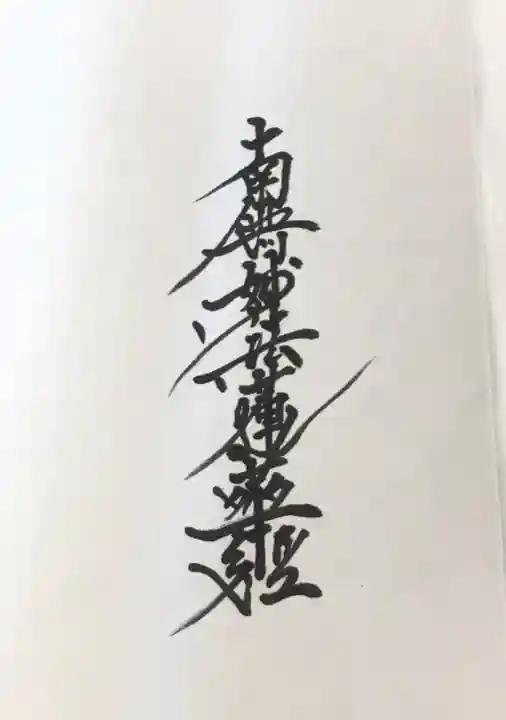 南無妙法蓮華経